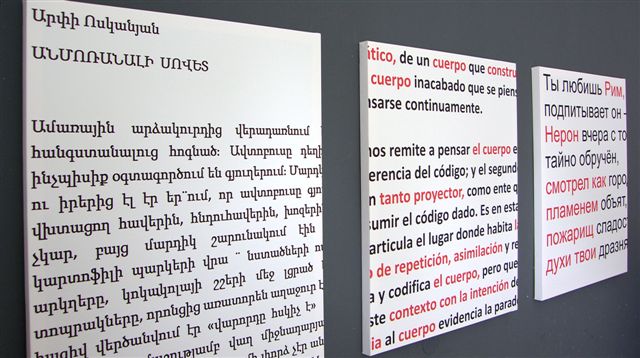 Արփի Ոսկանյան
ԱՆՄՈՌԱՆԱԼԻ ՍՈՎԵՏ
Ամառային արձակուրդից վերադառնում
հանգստանալուց հոգնած: Ավտոբուսը դեղի
ինչպիսիք օգտագործում են գյուղերում: Մարդկ
ու իրերից էլ էր եր¨ում, որ ավտոբուսը գյո
վխտացող հավերին, հնդուհավերին, խոզերին
չկար, բայց մարդիկ շարունակում էին
կարտոֆիլի պարկերի վրա ¨ նստածների ո
արկղերը, կոկակոլայի շշերի մեջ լցրած
տոպրակները, որոնցից առատորեն աղաջուր է
հազիվ վերծանվում էր «վարորդը հսկիչ է»
վաղ միջնադարյա
ático, de un cuerpo que constru
cuerpo inacabado que se piens
nsarse continuamente.
nos remite a pensar el cuerpo e
erencia del código; y el segund
n tanto proyector, como ente q
sumir el código dado. Es en esta
articula el lugar donde habita la
o de repetición, asimilación y re
a y codifica el cuerpo, pero que
ste contexto con la intención de
ia al cuerpo evidencia la parado
Ты любишь Рим,
подпитывает он –
Нерон вчера с то
тайно обручён,
смотрел как горо
пламенем объят,
пожарищ сладост
духи твои дразня